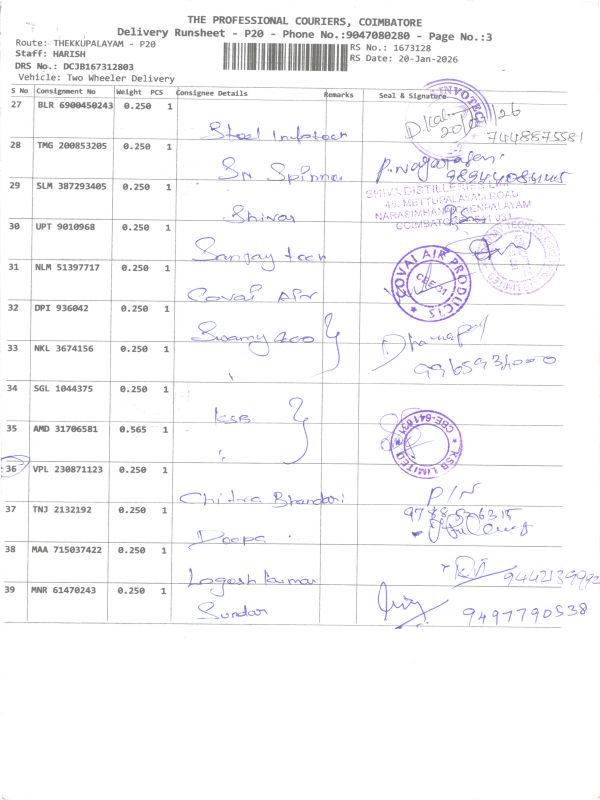 THE PROFESSIONAL COURIERS, COIMBATORE
Delivery Runsheet - P20 - Phone No.:9047080280 - Page No.:3
Route: THEKKUPALAYAM - P20
RS No.: 1673128
Staff: HARISH
RS Date: 20-Jan-2026
DRS No.: DCJB167312803
Vehicle: Two Wheeler Delivery
S No Consignment No Weight PCS Consignee Details Remarks Seal & Signature
27 BLR 6900450243 0.250 1
Steel Infotech 20/01/26
7448875581
28 TMG 200853205 0.250 1
Sri Spinna P. Nagarajan
29 SLM 387293405 0.250 1
Shivas
45, METTUPALAYAM ROAD
30 UPT 9010968 0.250 1
Sanjay tech
31 NLM 51397717 0.250 1
Covai Air COVAI AIR PRODUCTS CBE-31
32 DPI 936042 0.250 1
Swamy 200
33 NKL 3674156 0.250 1
34 SGL 1044375 0.250 1
KSB
35 AMD 31706581 0.565 1
KSB LIMITED CBE-641031
36 VPL 230871123 0.250 1
Chitra Bhandari P/N
37 TNJ 2132192 0.250 1
Doopa
38 MAA 715037422 0.250 1
Logesh Kumar 9442139992
39 MNR 61470243 0.250 1
Sundar 9497790538